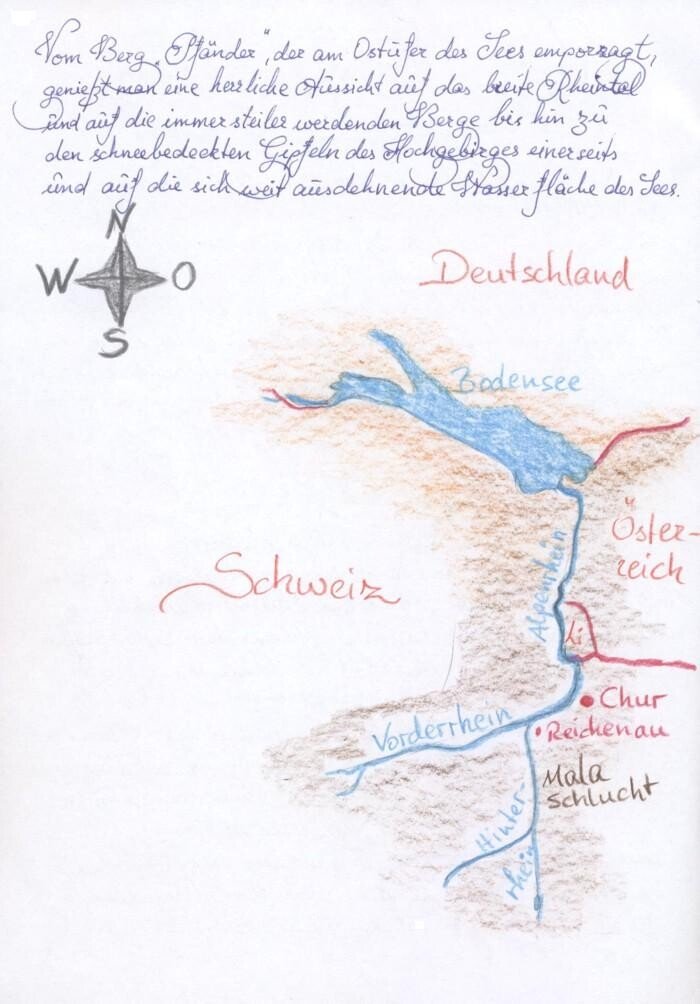 Vom Berg „Pfänder", der am Ostufer des Sees emporragt,
genießt man eine herrliche Aussicht auf das breite Rheintal
und auf die immer steiler werdenden Berge bis hin zu
den schneebedeckten Gipfeln des Hochgebirges einerseits
und auf die sich weit ausdehnende Wasserfläche des Sees.
N
W O
S
Deutschland
Bodensee
Öster-
reich
Alpenrhein
Schweiz
Li
Chur
Vorderrhein
Reichenau
Mala
schlucht
Hinter-
rhein